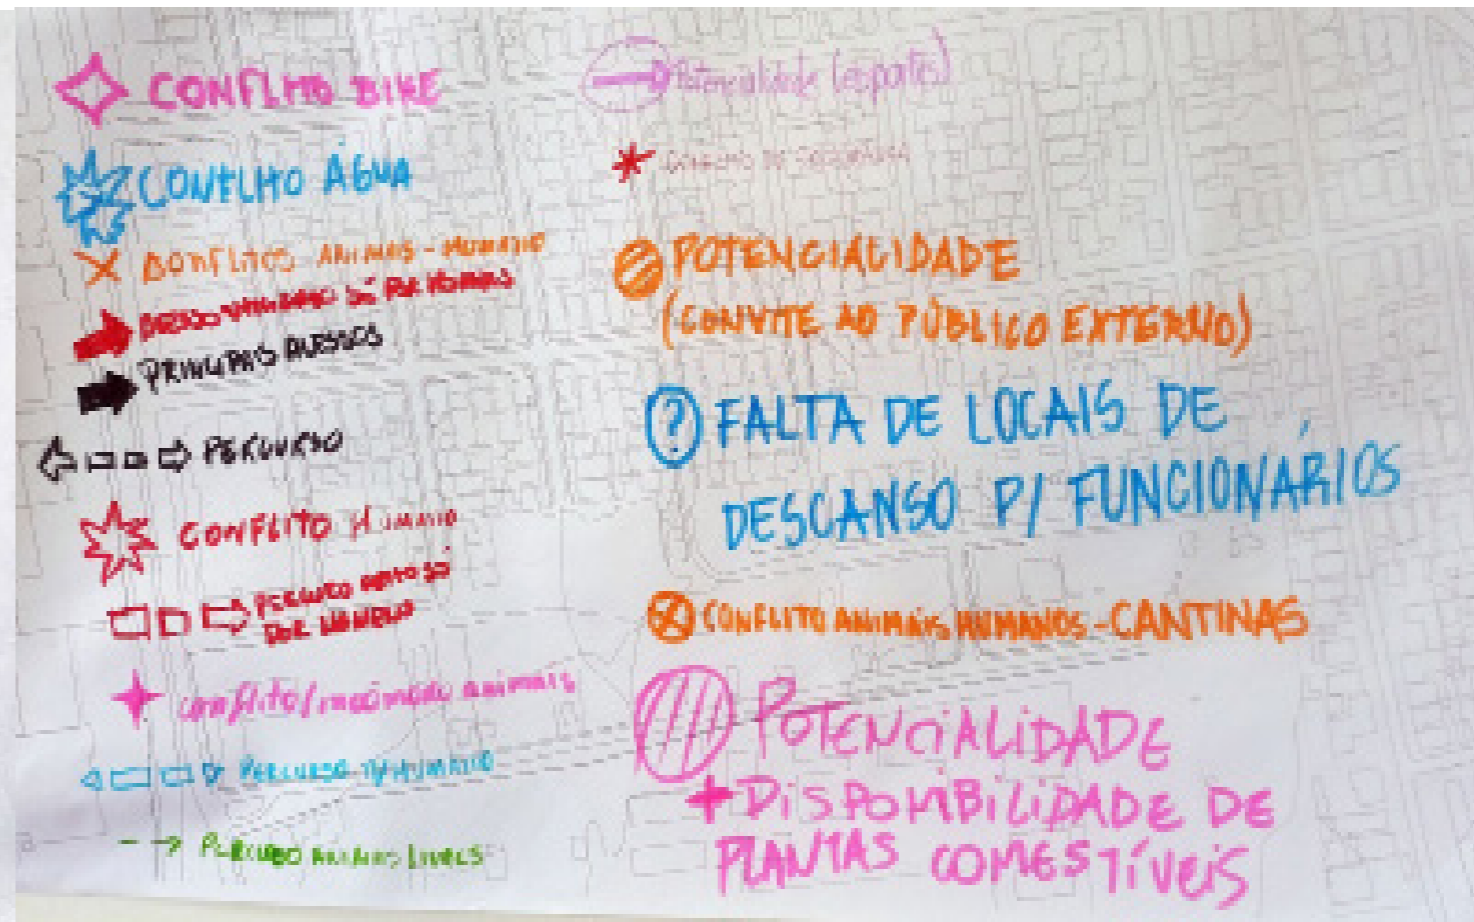 CONFLITO BIKE
CONFLITO ÁGUA
CONFLITOS ANIMAIS - HUMANO
SÓ POR HUMANOS
PRINCIPAIS ACESSOS
PERCURSO
CONFLITO HUMANO
PERCURSO SÓ
POR HUMANO
conflito/incômodo animais
PERCURSO HUMANO
PERCURSO ANIMAIS LIVRES
Potencialidade (esportes)
CONFLITO DE
POTENCIALIDADE
(CONVITE AO PÚBLICO EXTERNO)
? FALTA DE LOCAIS DE
DESCANSO P/ FUNCIONÁRIOS
CONFLITO ANIMAIS HUMANOS - CANTINAS
POTENCIALIDADE
+ DISPONIBILIDADE DE
PLANTAS COMESTÍVEIS